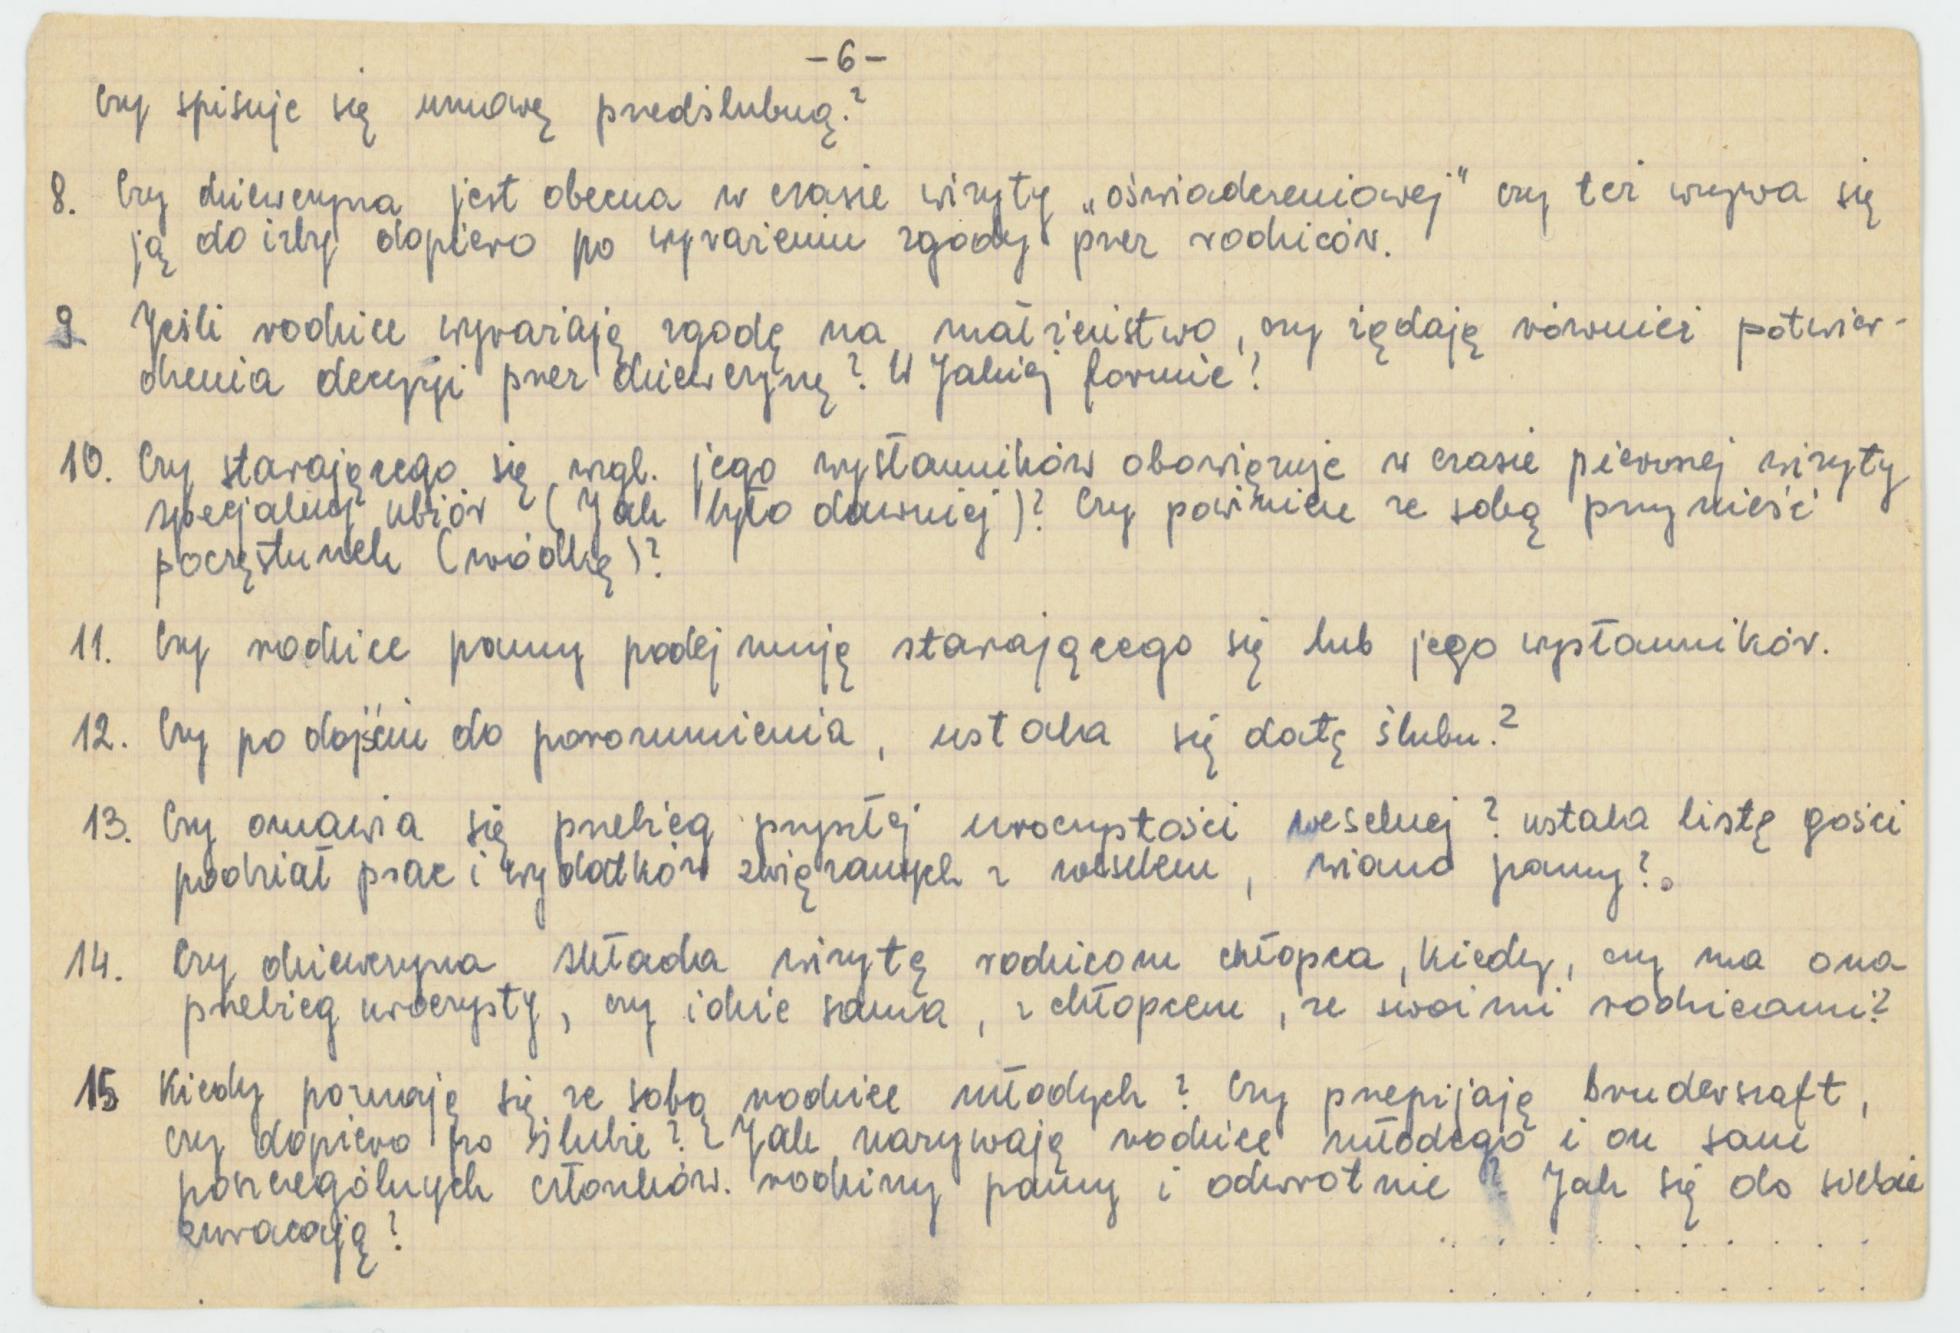 -6-
Czy spisuje się umowę przedślubną?
8. Czy dziewczyna jest obecna w czasie wizyty „oświadczeniowej" czy też wzywa się
ją do izby dopiero po wyrażeniu zgody przez rodziców.
9 Jeśli rodzice wyrażają zgodę na małżeństwo, czy żądają również potwier-
dzenia decyzji przez dziewczynę? W Jakiej formie?
10. Czy starającego się wzgl. jego wysłanników obowiązuje w czasie pierwszej wizyty
specjalny ubiór (Jak było dawniej)? Czy powinien ze sobą przynieść
poczęstunek (wódkę)?
11. Czy rodzice panny podejmują starającego się lub jego wysłanników.
12. Czy po dojściu do porozumienia, ustala się datę ślubu.?
13. Czy omawia się przebieg przyszłej uroczystości weselnej? ustala listę gości
podział prac i wydatków związanych z weselem, wiano panny?.
14. Czy dziewczyna składa wizytę rodzicom chłopca, kiedy, czy ma ona
przebieg uroczysty, czy idzie sama, z chłopcem, ze swoimi rodzicami?
15 Kiedy poznają się ze sobą rodzice młodych? Czy przepijają bruderszaft,
czy dopiero po ślubie? Jak nazywają rodzice młodego i on sam
poszczególnych członków. rodziny panny i odwrotnie? Jak się do siebie
zwracają?